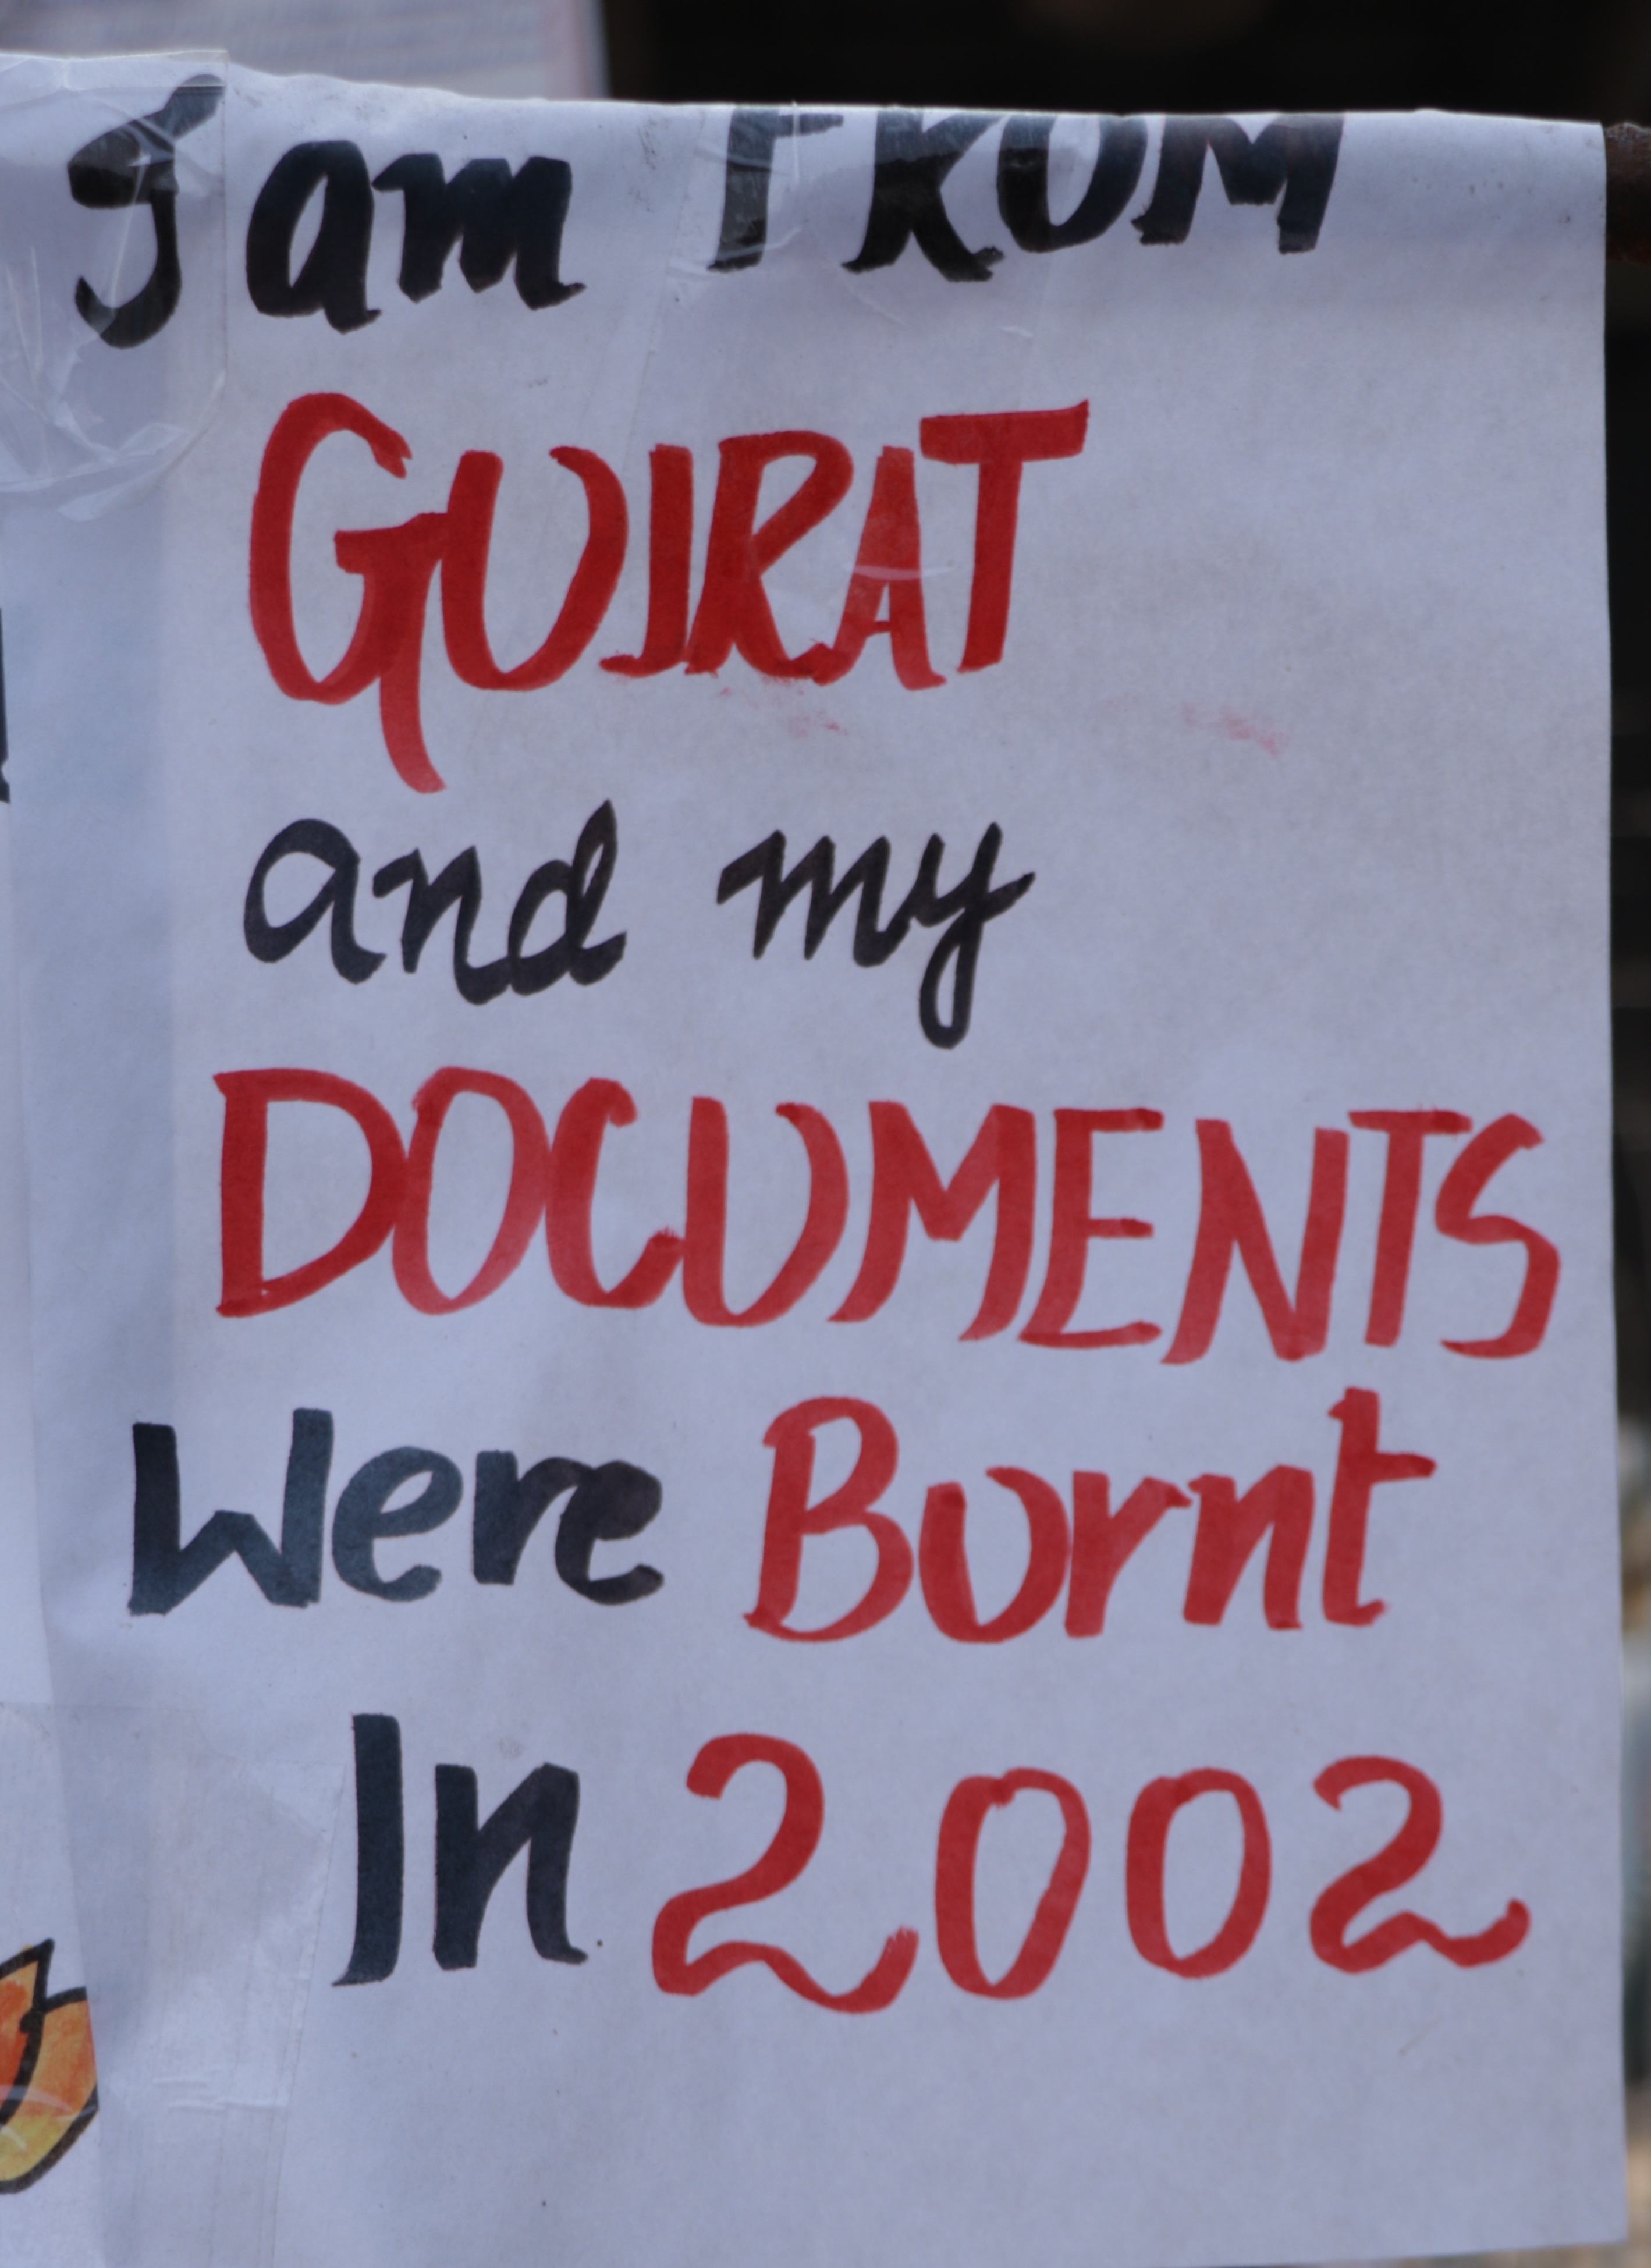 I am FROM
GUJRAT
and my
DOCUMENTS
Were Burnt
In 2002